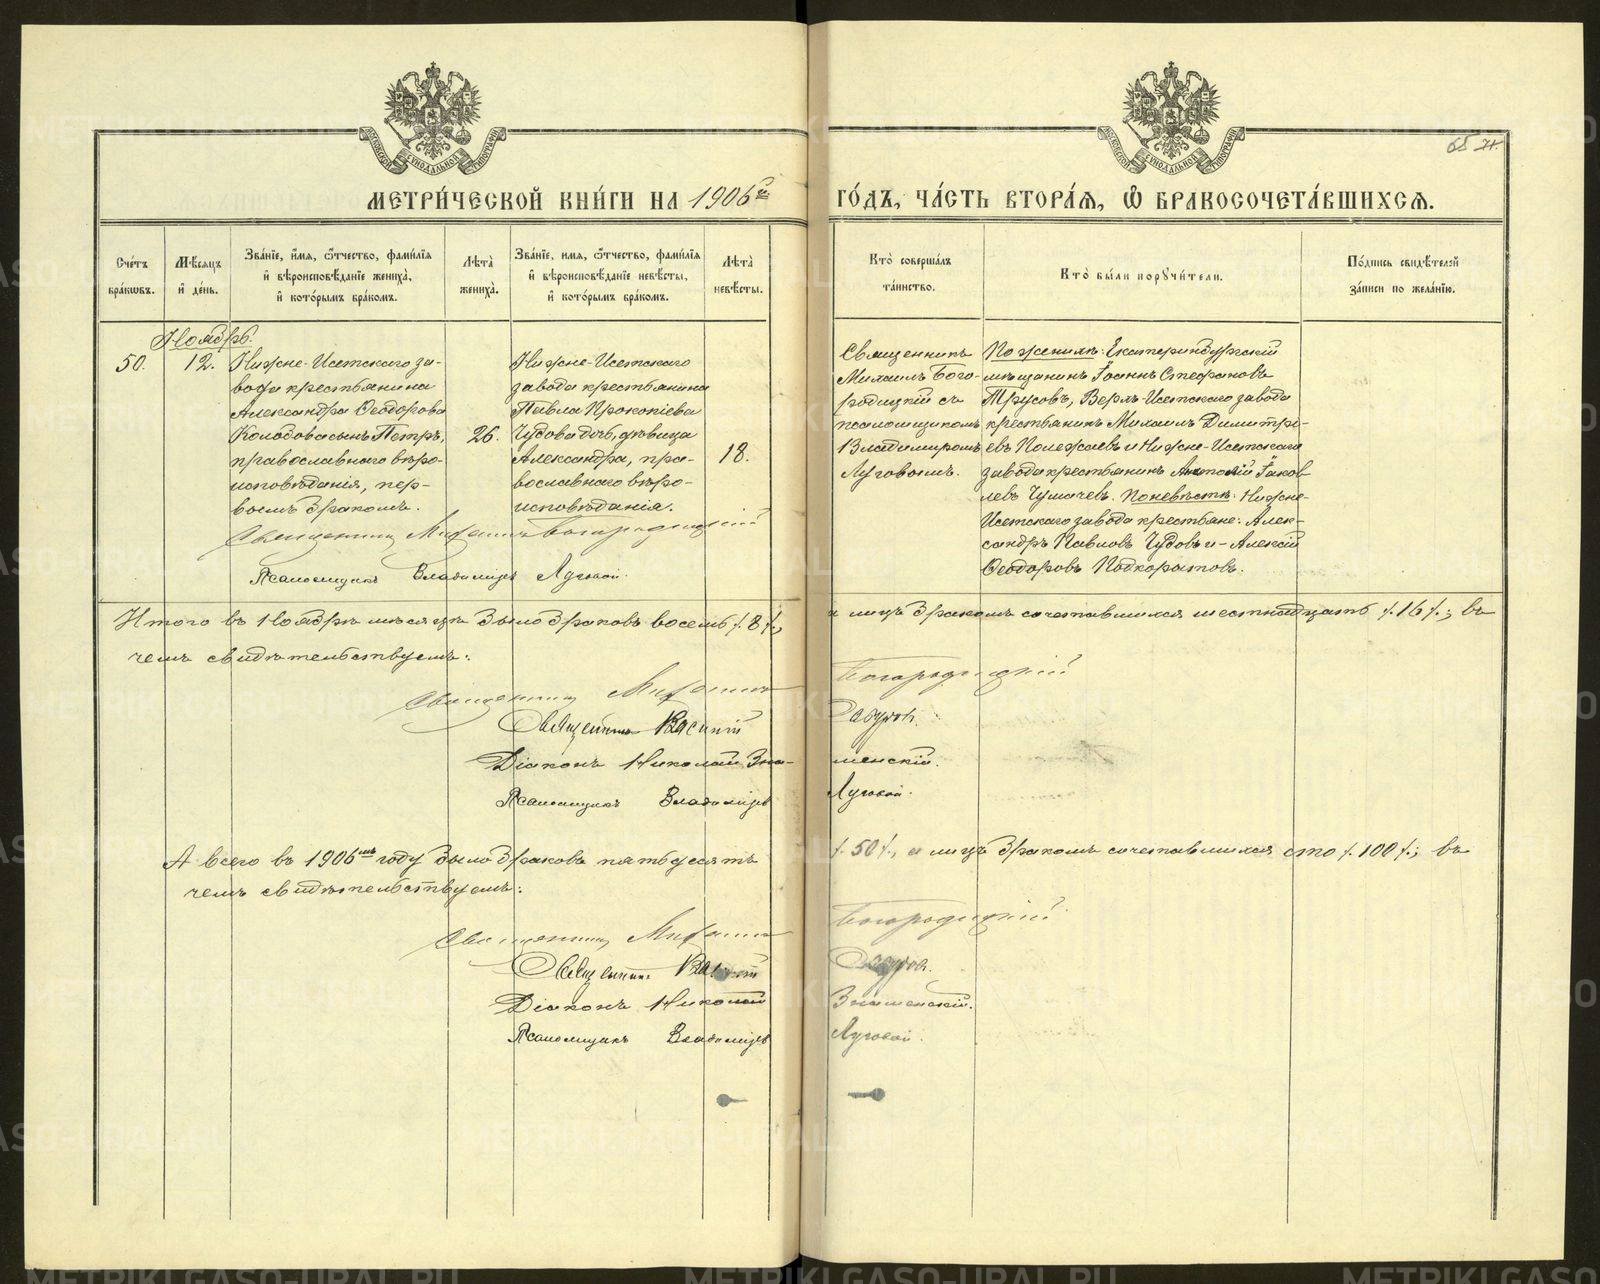 65 н.
МОСКОВСКОЙ СѴНОДАЛЬНОЙ ТИПОГРАФІИ
МОСКОВСКОЙ СѴНОДАЛЬНОЙ ТИПОГРАФІИ
МЕТРИ́ЧЕСКОЙ КНИ́ГИ НА 1906й ГО́ДЪ, ЧА́СТЬ ВТОРА́Я, Ѽ БРАКОСОЧЕТА́ВШИХСЯ.
Сче́тъ
бра́кѡвъ.
Мѣ́сяцъ
и҆ де́нь.
Зва́нїе, и҆́мя, ѻ҆́тчество, фами́лїя
и҆ вѣроисповѣ́данїе жениха̀,
и҆ кото́рымъ бра́комъ.
Лѣ́та̀
жениха̀.
Зва́нїе, и҆мя, ѻ҆́тчество, фами́лїя
и҆ вѣроисповѣ́данїе невѣ́сты,
и҆ кото́рымъ бра́комъ.
Лѣ́та̀
невѣ́сты.
Кто̀ соверша́лъ
та́инство.
Кто̀ бы́ли поручи́тели.
По́дпись свидѣ́телей
за́писи по жела́нїю.
Ноябрь.
50.
12.
Нижне-Исетскаго за-
вода крестьянина
Александра Ѳеодорова
Колобова сынъ Петръ,
православнаго вѣро-
исповѣданія, пер-
вымъ бракомъ.
26.
Нижне-Исетскаго
завода крестьянина
Павла Прокопіева
Чудова дочь, дѣвица
Александра, пра-
вославнаго вѣро-
исповѣданія.
18.
Священникъ
Михаилъ Бого-
родицкій съ
псаломщикомъ
Владимиромъ
Луговымъ.
По женихѣ: Екатеринбургскій
мѣщанинъ Іоаннъ Стефановъ
Трусовъ, Верхъ-Исетскаго завода
крестьянинъ Михаилъ Димитрі-
евъ Полежаевъ и Нижне-Исетскаго
завода крестьянинъ Анатолій Іаков
левъ Чумачевъ. По невѣстѣ: Нижне-
Исетскаго завода крестьяне: Алек-
сандръ Павловъ Чудовъ и Алексій
Ѳеодоровъ Подкорытовъ.
Священникъ Михаилъ Богородицкій
Псаломщикъ Владиміръ Луговой.
Итого въ Ноябрѣ мѣсяцѣ было браковъ восемь /. 8 /., а лицъ бракомъ сочетавшихся шестнадцать /. 16 /.; въ
чемъ свидѣтельствуемъ:
Священникъ Михаилъ Богородицкій
Священникъ Василій
Діаконъ Николай Знаменскій.
Псаломщикъ Владиміръ Луговой.
А всего въ 1906мъ году было браковъ пятьдесятъ /. 50 /., а лицъ бракомъ сочетавшихся сто /. 100 /.; въ
чемъ свидѣтельствуемъ:
Священникъ Михаилъ Богородицкій
Священникъ Василій
Діаконъ Николай Знаменскій.
Псаломщикъ Владиміръ Луговой.
METRIKI.GASO-URAL.RU